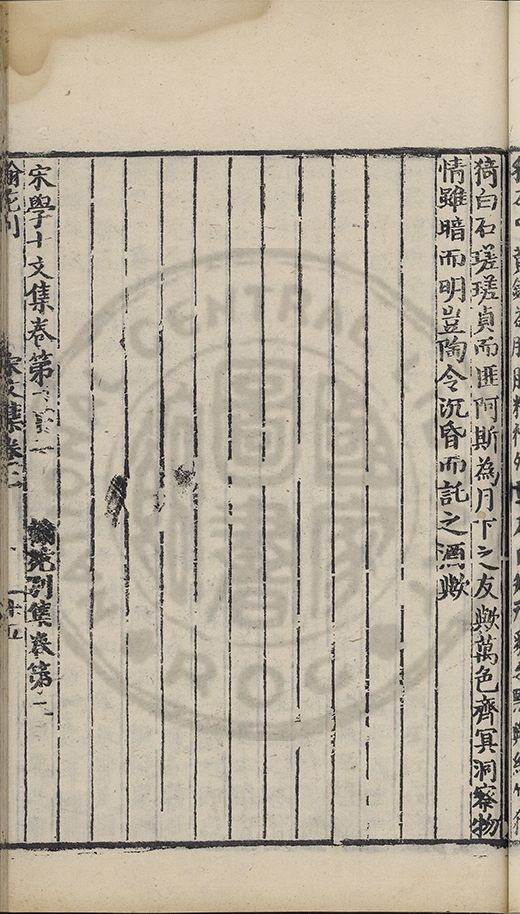 猗白石瑳瑳貞而匪阿斯為月下之友歟萬色齊冥洞察物
情雖暗而明豈陶令沉昏而託之酒歟
宋學士文集卷第
翰苑別集卷第
翰苑別
宋文集卷